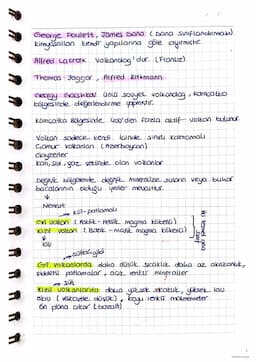 George Poulett, James Dana (Dana sınıflandırması)
kimyasalları kendi yapılarına göre ayırmıştır.
Alfred Lacroix Volkanolog'dur. (Fransız)
Thomas Jaggar, Alfred Rittmann
Georgy Gorshkov ünlü sovyet volkanolog, kamçatka
bölgesinde değerlendirme yapmıştır.
Kamçatka Bölgesinde 400'den fazla aktif volkan bulunur.
Volkan sadece kendi içinde sınırlı kalmamalı
Çamur volkanları (Azerbaycan)
Gayzerler
Katı, sıvı, gaz şeklinde olan volkanlar
Değişik bölgelerde değişik mineralize suların veya buhar
bacalarının olduğu yerler mevcuttur.
Nemrut
kül-patlamalı
Gri volkan
Kızıl volkan (Bazik - mafik magma kökenli)
lav
iki temel gruba
Gri volkanlarda daha düşük sıcaklık daha az akışkanlık,
şiddetli patlamalar, açık renkli mineraller
Kızıl volkanlarda daha yüksek sıcaklık, yüksek lav
akışı (viskozite düşük), koyu renkli malzemeler
ön plana çıkar (bazalt)